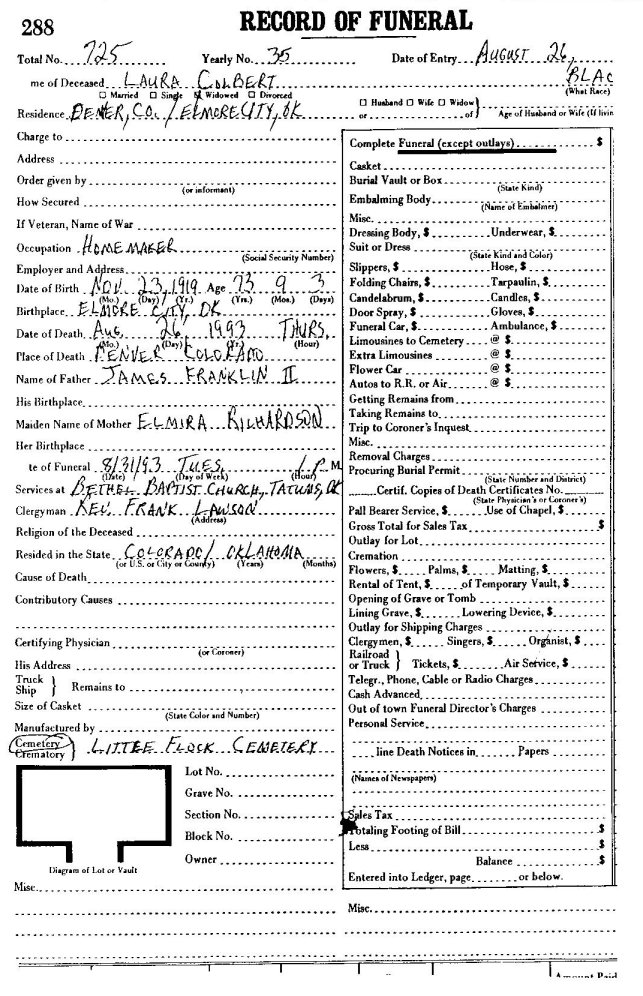 288 RECORD OF FUNERAL
Total No. 725 Yearly No. 35 Date of Entry AUGUST 26,
me of Deceased LAURA COLBERT BLAC
☐ Married ☐ Single ☒ Widowed ☐ Divorced (What Race)
Residence DENER, CO. / ELMORE CITY, OK
☐ Husband ☐ Wife ☐ Widow }
or of } Age of Husband or Wife (If livin
Charge to
Address
Order given by
(or informant)
How Secured
If Veteran, Name of War
Occupation HOMEMAKER
(Social Security Number)
Employer and Address
Date of Birth NOV. 23, 1919 Age 73 9 3
(Mo.) (Day) (Yr.) (Yrs.) (Mos.) (Days)
Birthplace ELMORE CITY, OK
Date of Death AUG 26 1993 THURS.
(Mo.) (Day) (Yr.) (Hour)
Place of Death DENVER COLORADO
Name of Father JAMES FRANKLIN II
His Birthplace
Maiden Name of Mother ELMIRA RICHARDSON
Her Birthplace
te of Funeral 8/31/93 TUES. 1 P M
(Date) (Day of Week) (Hour)
Services at BETHEL BAPTIST CHURCH, TATUMS, OK
Clergyman REV. FRANK LAWSON
(Address)
Religion of the Deceased
Resided in the State COLORADO / OKLAHOMA
(or U.S. or City or County) (Years) (Months)
Cause of Death
Contributory Causes
Certifying Physician
(or Coroner)
His Address
Truck
Ship } Remains to
Size of Casket
(State Color and Number)
Manufactured by
Cemetery
Crematory } LITTLE FLOCK CEMETERY
Lot No.
Grave No.
Section No.
Block No.
Owner
Diagram of Lot or Vault
Misc.
Complete Funeral (except outlays) $
Casket
Burial Vault or Box
(State Kind)
Embalming Body
(Name of Embalmer)
Misc.
Dressing Body, $ Underwear, $
Suit or Dress
(State Kind and Color)
Slippers, $ Hose, $
Folding Chairs, $ Tarpaulin, $
Candelabrum, $ Candles, $
Door Spray, $ Gloves, $
Funeral Car, $ Ambulance, $
Limousines to Cemetery @ $
Extra Limousines @ $
Flower Car @ $
Autos to R.R. or Air @ $
Getting Remains from
Taking Remains to
Trip to Coroner's Inquest
Misc.
Removal Charges
Procuring Burial Permit
(State Number and District)
Certif. Copies of Death Certificates No.
(State Physician's or Coroner's)
Pall Bearer Service, $ Use of Chapel, $
Gross Total for Sales Tax $
Outlay for Lot
Cremation
Flowers, $ Palms, $ Matting, $
Rental of Tent, $ of Temporary Vault, $
Opening of Grave or Tomb
Lining Grave, $ Lowering Device, $
Outlay for Shipping Charges
Clergymen, $ Singers, $ Organist, $
Railroad
or Truck } Tickets, $ Air Service, $
Telegr., Phone, Cable or Radio Charges
Cash Advanced
Out of town Funeral Director's Charges
Personal Service
line Death Notices in Papers
(Names of Newspapers)
Sales Tax
Totaling Footing of Bill $
Less $
Balance $
Entered into Ledger, page or below.
Misc.
Amount Paid